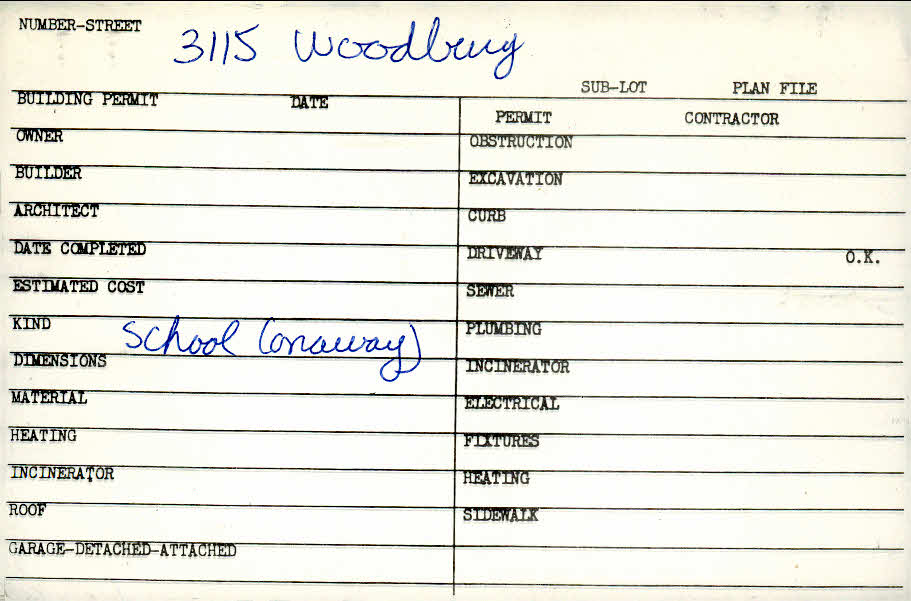 NUMBER-STREET 3115 Woodbury
SUB-LOT PLAN FILE
BUILDING PERMIT DATE
OWNER
BUILDER
ARCHITECT
DATE COMPLETED
ESTIMATED COST
KIND School (onaway)
DIMENSIONS
MATERIAL
HEATING
INCINERATOR
ROOF
GARAGE-DETACHED-ATTACHED
PERMIT CONTRACTOR
OBSTRUCTION
EXCAVATION
CURB
DRIVEWAY O.K.
SEWER
PLUMBING
INCINERATOR
ELECTRICAL
FIXTURES
HEATING
SIDEWALK